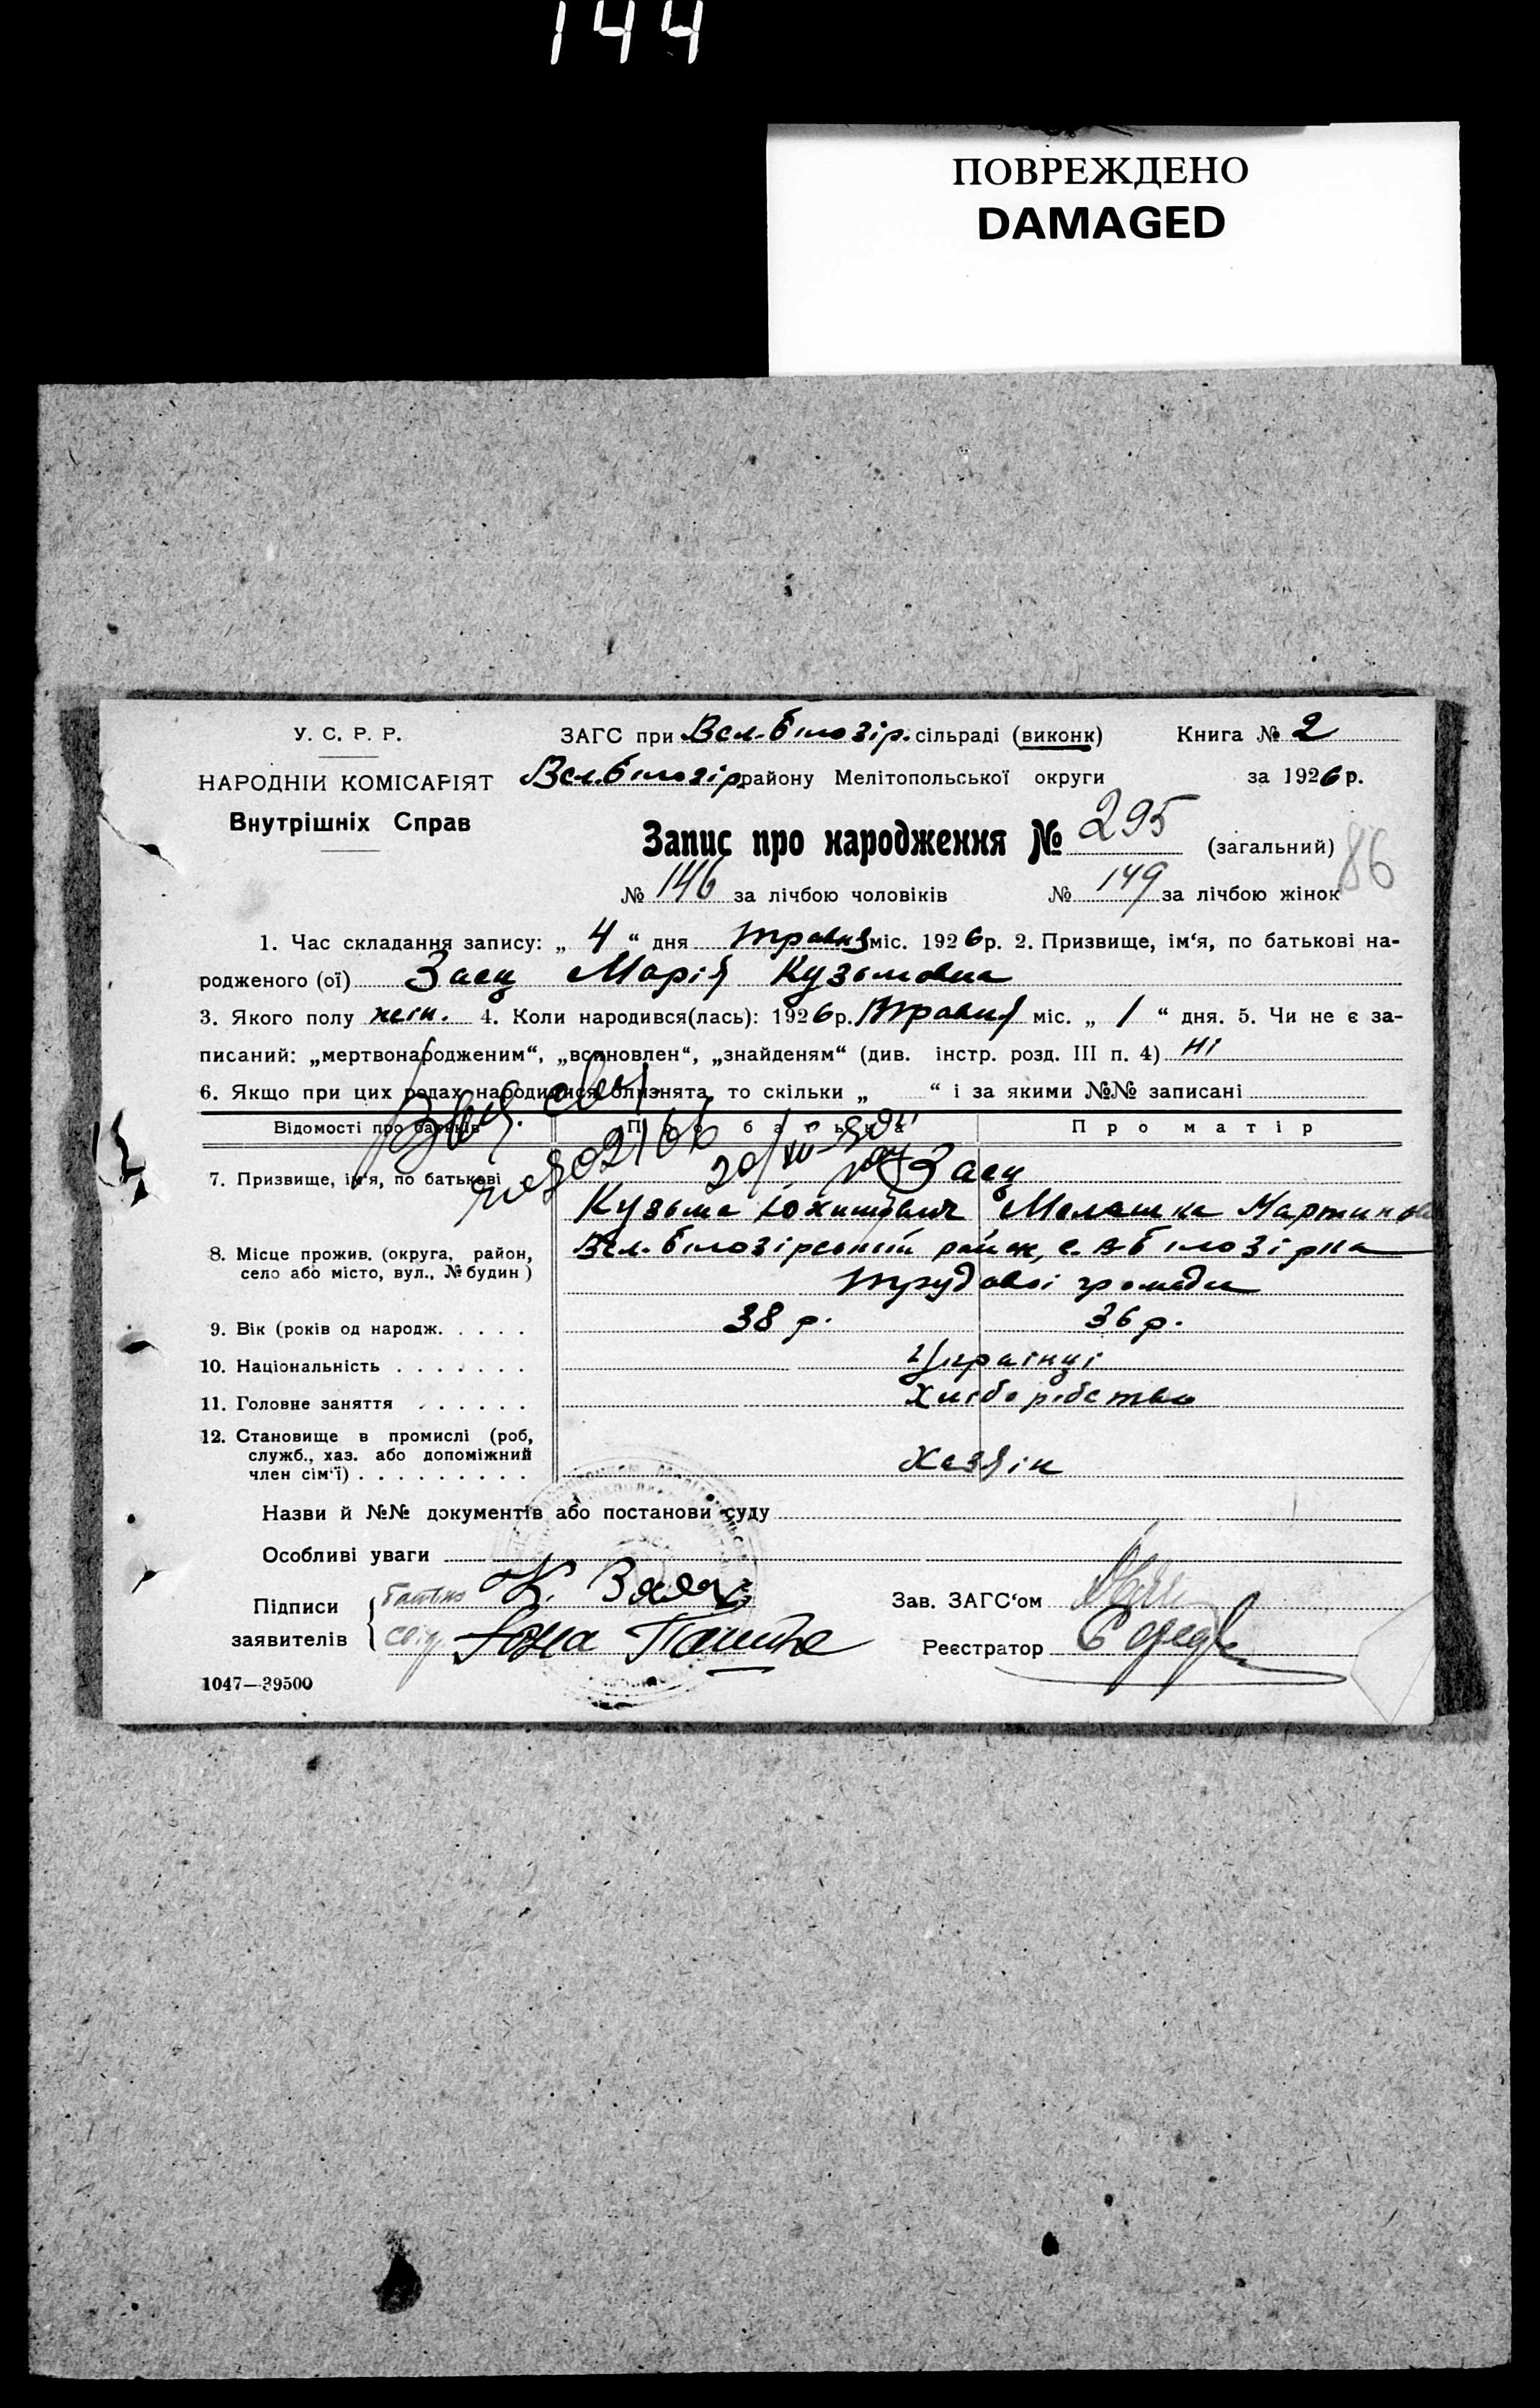 144
ПОВРЕЖДЕНО
DAMAGED
У. С. Р. Р.
НАРОДНІЙ КОМІСАРІЯТ
Внутрішніх Справ
ЗАГС при Вел.-білозір. сільраді (виконк) Книга № 2
Вел. білозір. району Мелітопольської округи за 1926 р.
Запис про народження № 295 (загальний)
86
№ 146 за лічбою чоловіків № 149 за лічбою жінок
1. Час складання запису: „ 4 “ дня травня міс. 1926 р. 2. Призвище, ім‘я, по батькові на-
родженого (ої) Заєц Марія Кузьмовна
3. Якого полу жін. 4. Коли народився(лась): 1926 р. Травня міс. „ 1 “ дня. 5. Чи не є за-
писаний: „мертвонародженим“, „встановлен“, „знайденям“ (див. інстр. розд. III п. 4) ні
6. Якщо при цих родах народилися близнята, то скільки „ “ і за якими №№ записані
Відомості про батьків Про батька Про матір
7. Призвище, ім‘я, по батькові Заєц
Кузьма Юхимович Мелашка Мартинов
8. Місце прожив. (округа, район,
село або місто, вул., № будин)
Вел. білозірський район, с. В-білозірка
трудової громади
9. Вік (років од народж. . . . . 38 р. 36 р.
10. Національність . . . . . . . Українці
11. Головне заняття . . . . . . Хліборобство
12. Становище в промислі (роб,
служб., хаз. або допоміжний
член сім‘ї) . . . . . . . . . Хазяін
Назви й №№ документів або постанови суду
Особливі уваги
Підписи
заявителів
батько К. Заяц
свід.
Зав. ЗАГС‘ом
Реєстратор
1047—39500